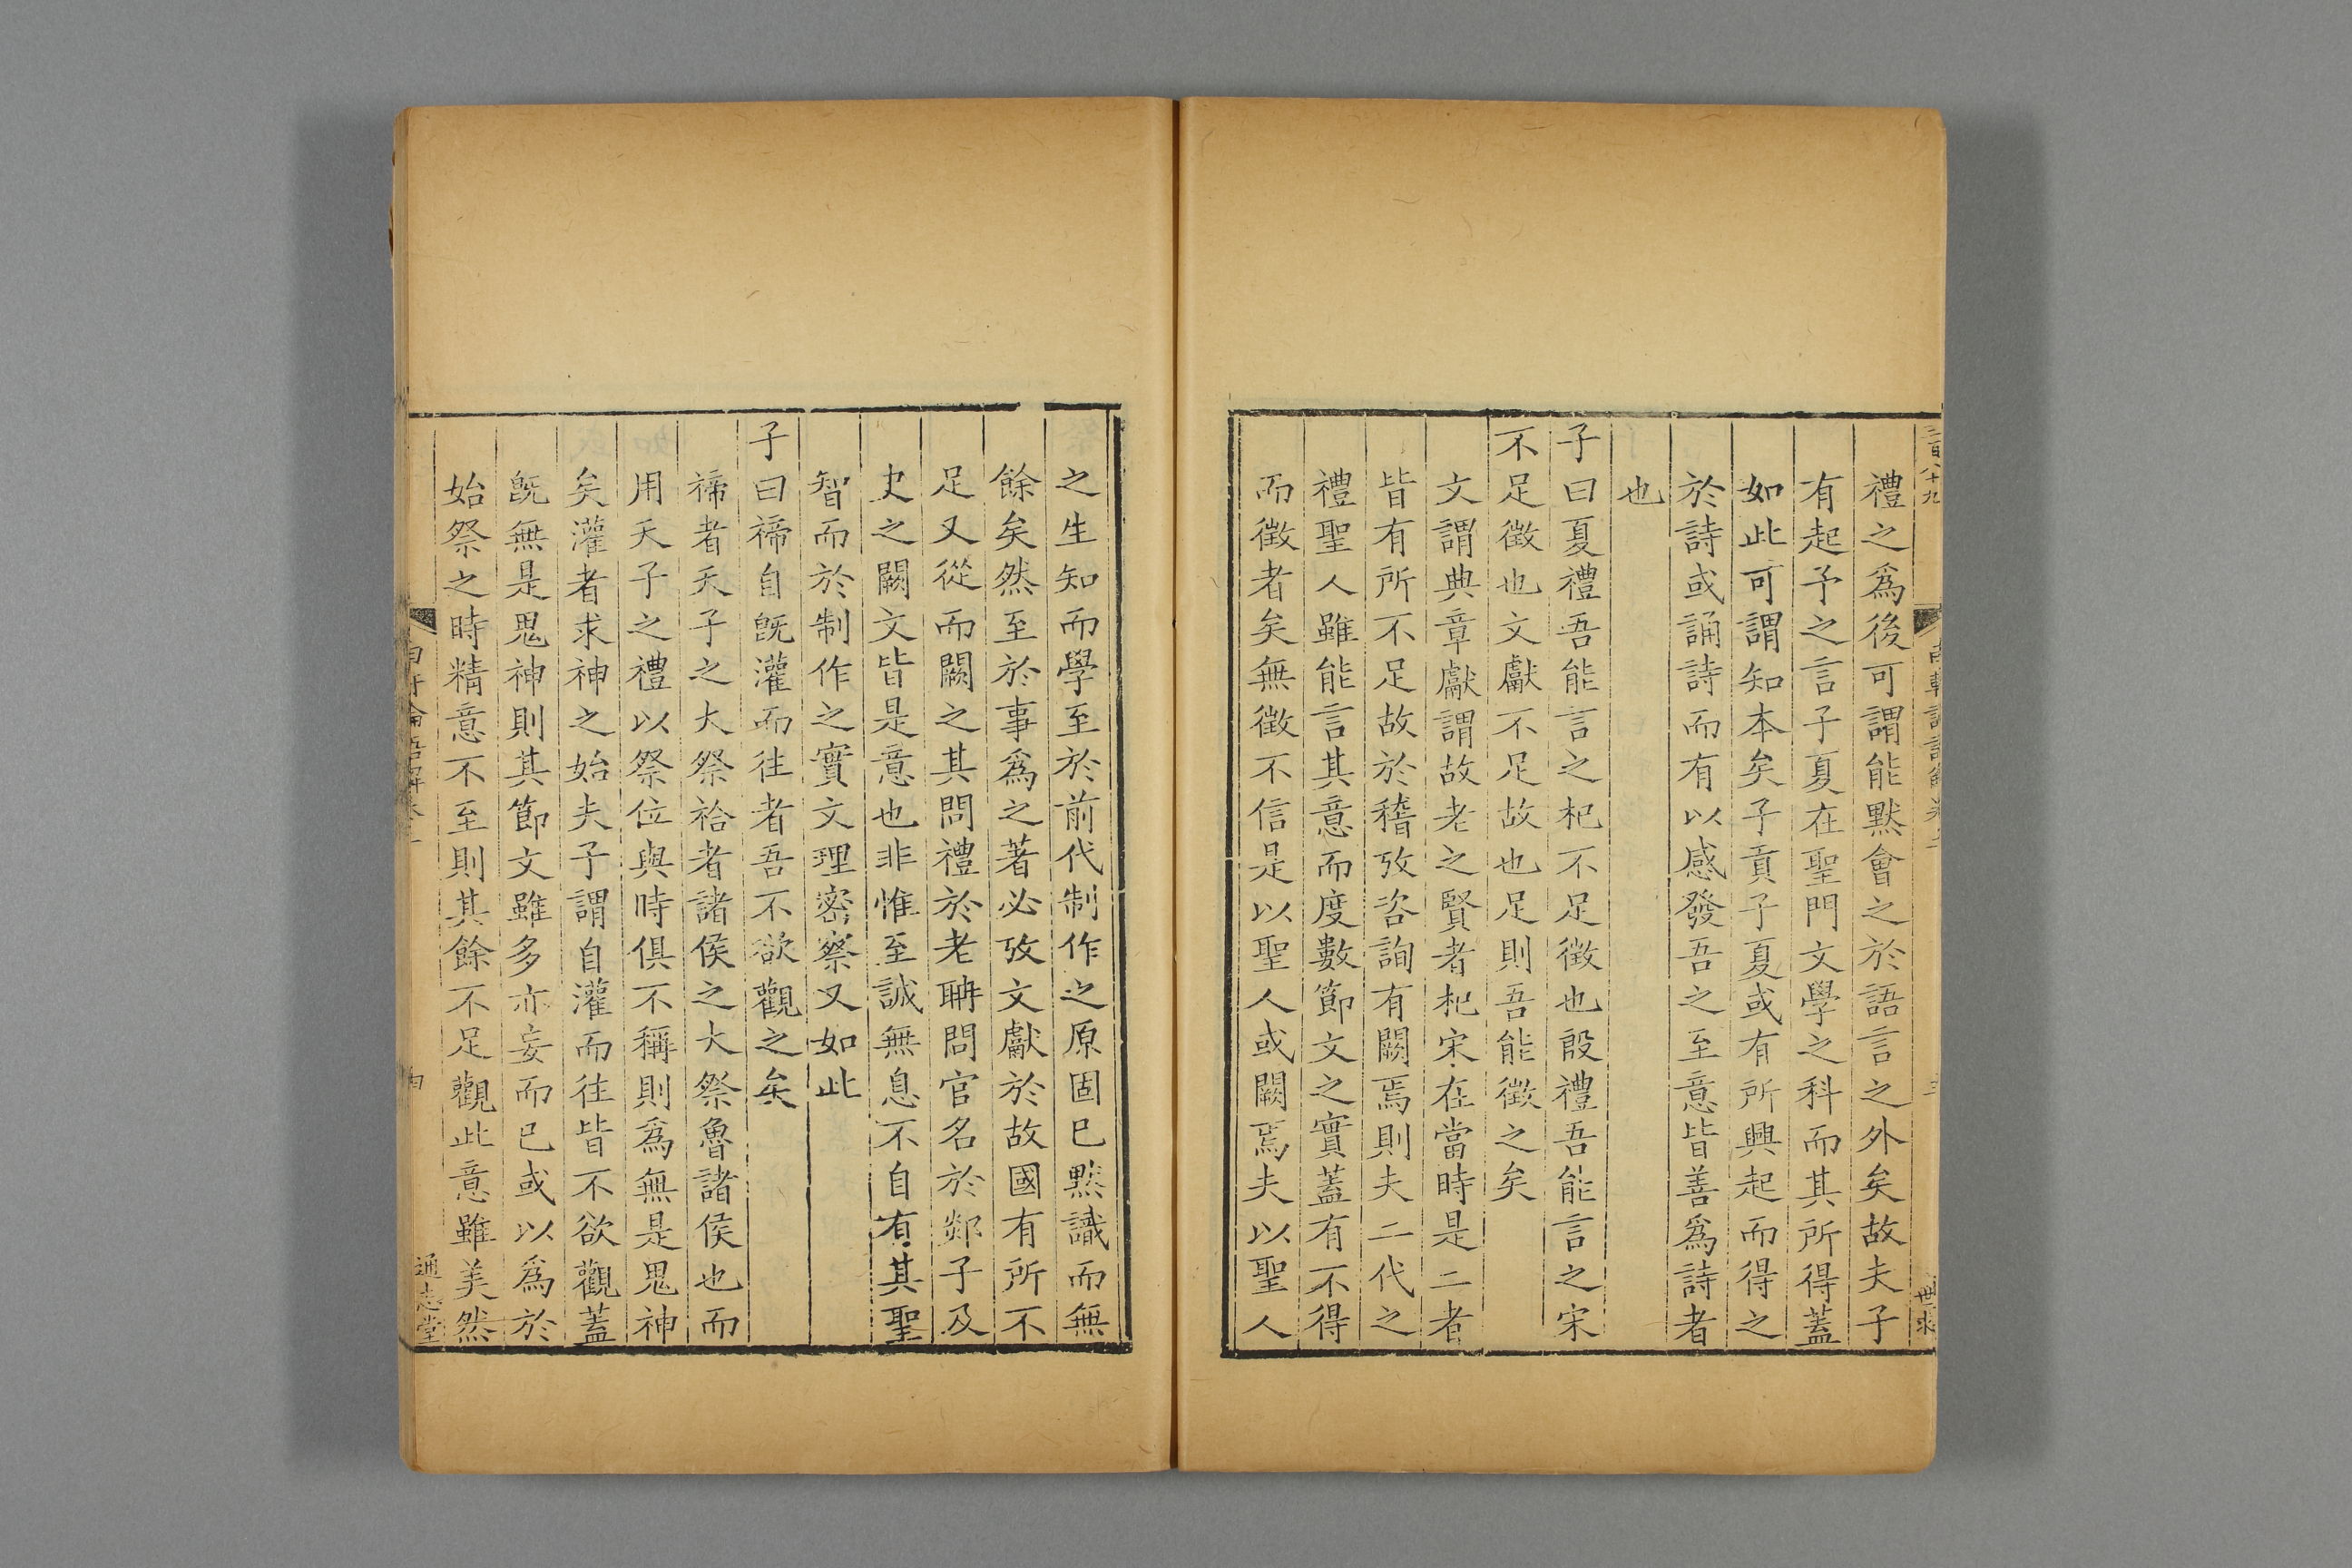 禮之爲後可謂能默會之於語言之外矣故夫子
有起予之言子夏在聖門文學之科而其所得蓋
如此可謂知本矣子貢子夏或有所興起而得之
於詩或誦詩而有以感發吾之至意皆善爲詩者
也
子曰夏禮吾能言之杞不足徵也殷禮吾能言之宋
不足徵也文獻不足故也足則吾能徵之矣
文謂典章獻謂故老之賢者杞宋在當時是二者
皆有所不足故於稽攷咨詢有闕焉則夫二代之
禮聖人雖能言其意而度數節文之實蓋有不得
而徵者矣無徵不信是以聖人或闕焉夫以聖人
之生知而學至於前代制作之原固已黙識而無
餘矣然至於事爲之著必攷文獻於故國有所不
足又從而闕之其問禮於老聃問官名於郯子及
史之闕文皆是意也非惟至誠無息不自有其聖
智而於制作之實文理密察又如此
子曰禘自旣灌而往者吾不欲觀之矣
禘者天子之大祭祫者諸侯之大祭魯諸侯也而
用天子之禮以祭位與時俱不稱則爲無是鬼神
矣灌者求神之始夫子謂自灌而往皆不欲觀蓋
旣無是鬼神則其節文雖多亦妄而已或以爲於
始祭之時精意不至則其餘不足觀此意雖美然
通志堂